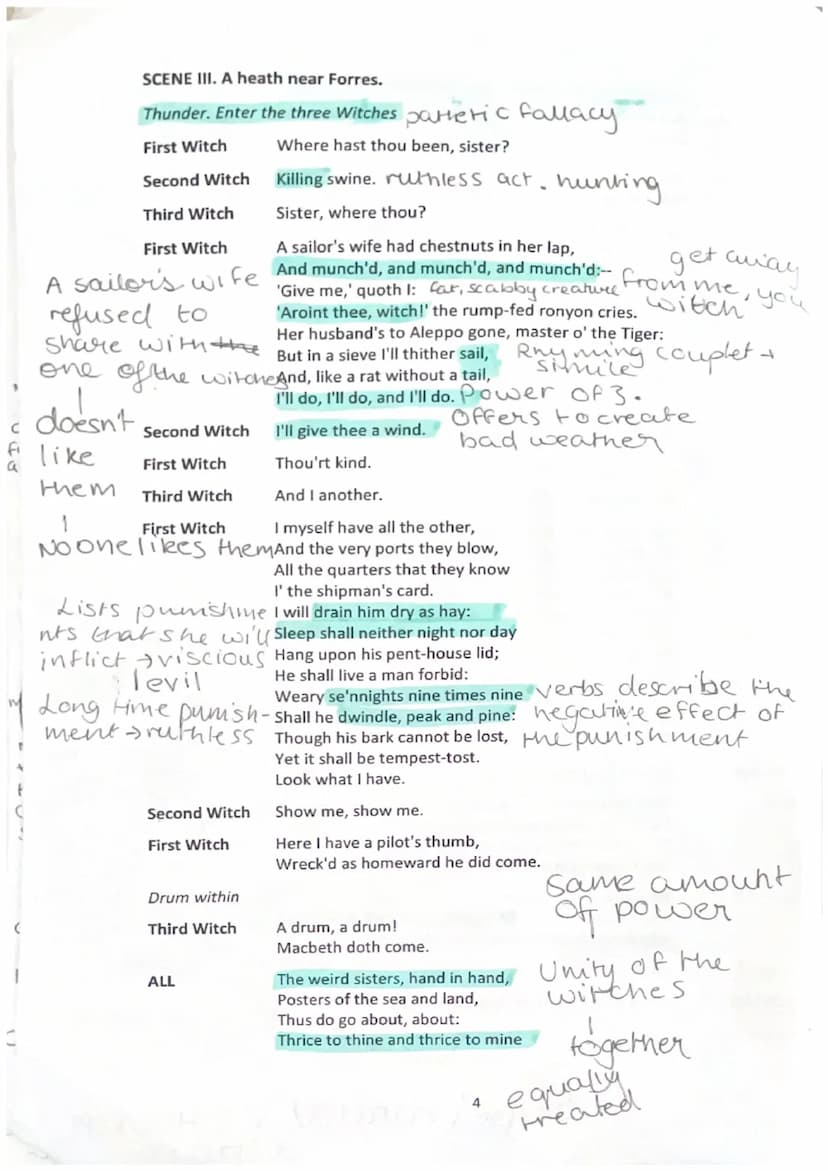 SCENE III. A heath near Forres.
Thunder. Enter the three Witches patheric fallacy
First Witch Where hast thou been, sister?
Second Witch Killing swine. ruthless act. hunting
Third Witch Sister, where thou?
First Witch A sailor's wife had chestnuts in her lap,
And munch'd, and munch'd, and munch'd:--
'Give me,' quoth I: fat, scabby creature
'Aroint thee, witch!' the rump-fed ronyon cries.
get away
from me, you
witch
Her husband's to Aleppo gone, master o' the Tiger:
But in a sieve I'll thither sail, Rhyming couplet →
simile
And, like a rat without a tail,
I'll do, I'll do, and I'll do. Power of 3.
A sailor's wife
refused to
share with the
one of the witches
doesn't
like
them
No one likes them
Second Witch I'll give thee a wind. Offers to create
bad weather
First Witch Thou'rt kind.
Third Witch And I another.
First Witch I myself have all the other,
And the very ports they blow,
All the quarters that they know
I' the shipman's card.
I will drain him dry as hay:
Sleep shall neither night nor day
Hang upon his pent-house lid;
He shall live a man forbid:
Weary se'nnights nine times nine
Shall he dwindle, peak and pine:
Though his bark cannot be lost,
Yet it shall be tempest-tost.
Look what I have.
Lists punishme
nts that she will
inflict → viscious
/evil
Long time punish-
ment → ruthless
verbs describe the
negative effect of
the punishment
Second Witch Show me, show me.
First Witch Here I have a pilot's thumb,
Wreck'd as homeward he did come.
Drum within
Third Witch A drum, a drum!
Macbeth doth come.
ALL The weird sisters, hand in hand,
Posters of the sea and land,
Thus do go about, about:
Thrice to thine and thrice to mine
same amount
of power
Unity of the
witches
together
equally
treated
4